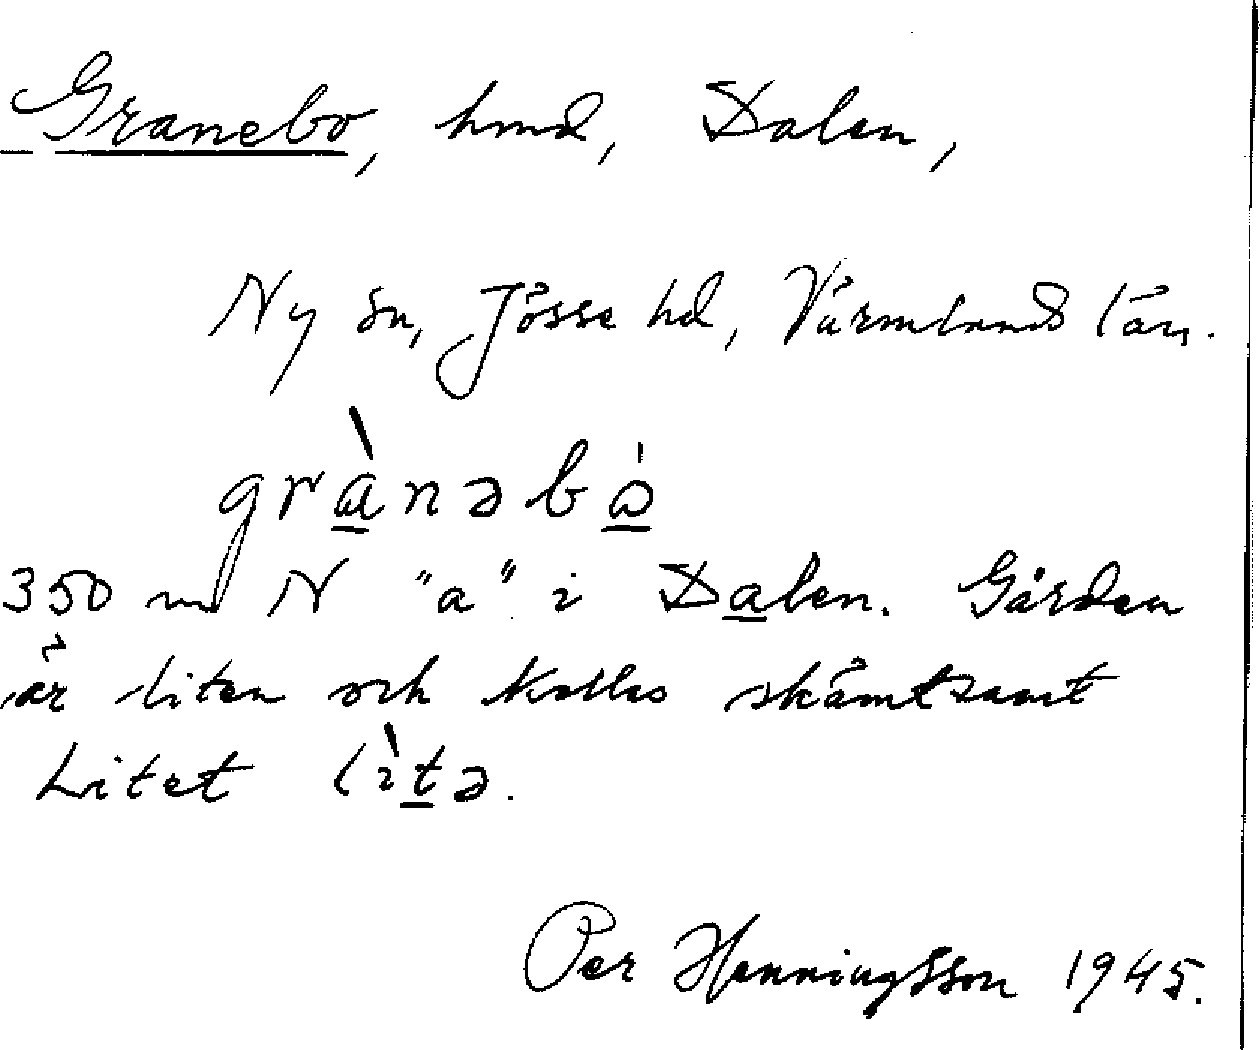 Granebo, hmd, Dalen,
Ny sn, Jösse hd, Värmlands län.
grànəbò
350 m N "a" i Dalen. Gården
är liten och kallas skämtsamt
Litet lìtə.
Per Henningsson 1945.